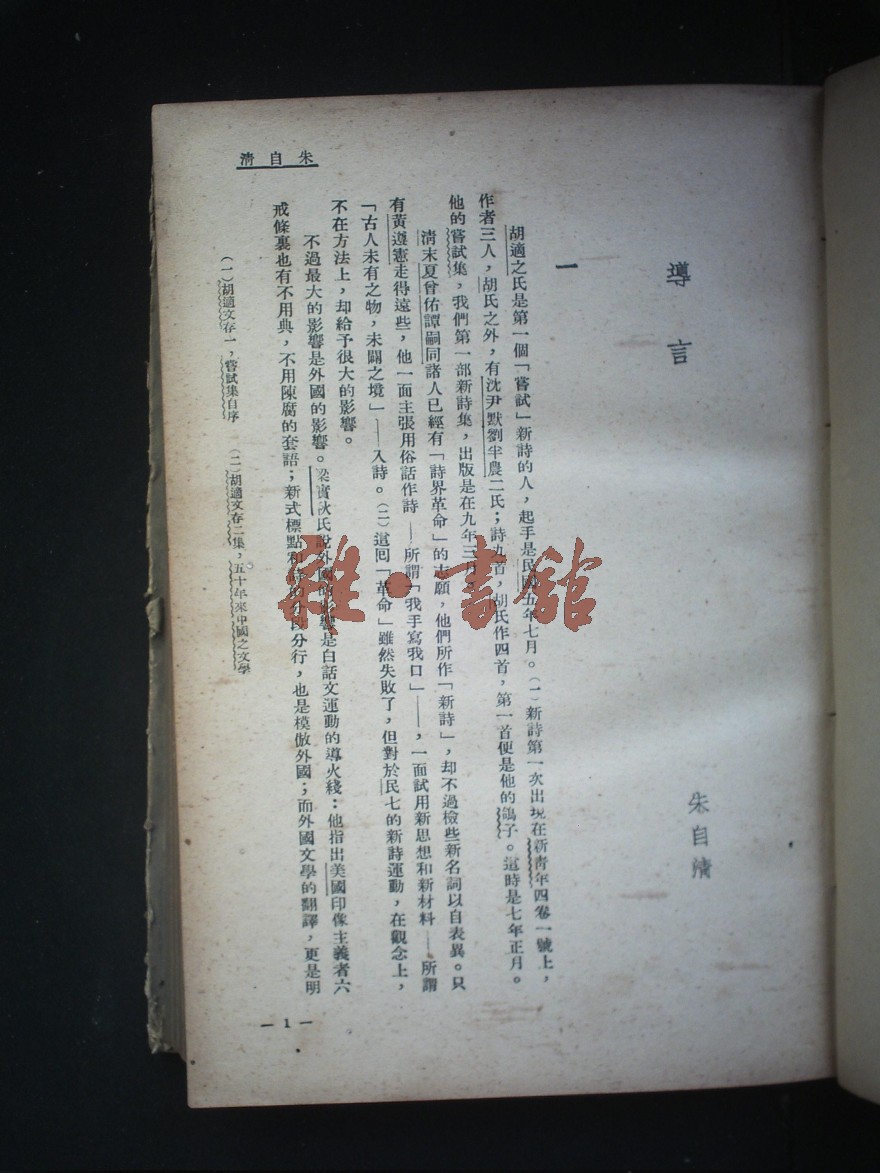 導言
朱自清
一
胡適之氏是第一個「嘗試」新詩的人，起手是民國五年七月。（一）新詩第一次出現在新青年四卷一號上，
作者三人，胡氏之外，有沈尹默劉半農二氏；詩九首，胡氏作四首，第一首便是他的鴿子。這時是七年正月。
他的嘗試集，我們第一部新詩集，出版是在九年三月。
清末夏曾佑譚嗣同諸人已經有「詩界革命」的志願，他們所作「新詩」，却不過檢些新名詞以自表異。只
有黃遵憲走得遠些，他一面主張用俗話作詩——所謂「我手寫我口」——，一面試用新思想和新材料——所謂
「古人未有之物，未闢之境」——入詩。（二）這回「革命」雖然失敗了，但對於民七的新詩運動，在觀念上，
不在方法上，却給予很大的影響。
不過最大的影響是外國的影響。梁實秋氏說外國的影響是白話文運動的導火綫：他指出美國印像主義者六
戒條裏也有不用典，不用陳腐的套語；新式標點和詩的分段分行，也是模倣外國；而外國文學的翻譯，更是明
（一）胡適文存一，嘗試集自序 （二）胡適文存二集，五十年來中國之文學
朱自清
— 1 —
雜·書館